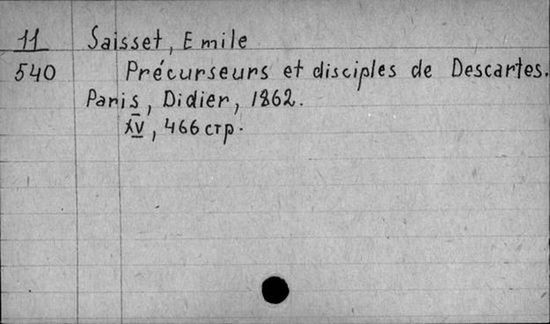 11 Saisset, Emile
540 Précurseurs et disciples de Descartes.
Paris, Didier, 1862.
XV, 466 стр.